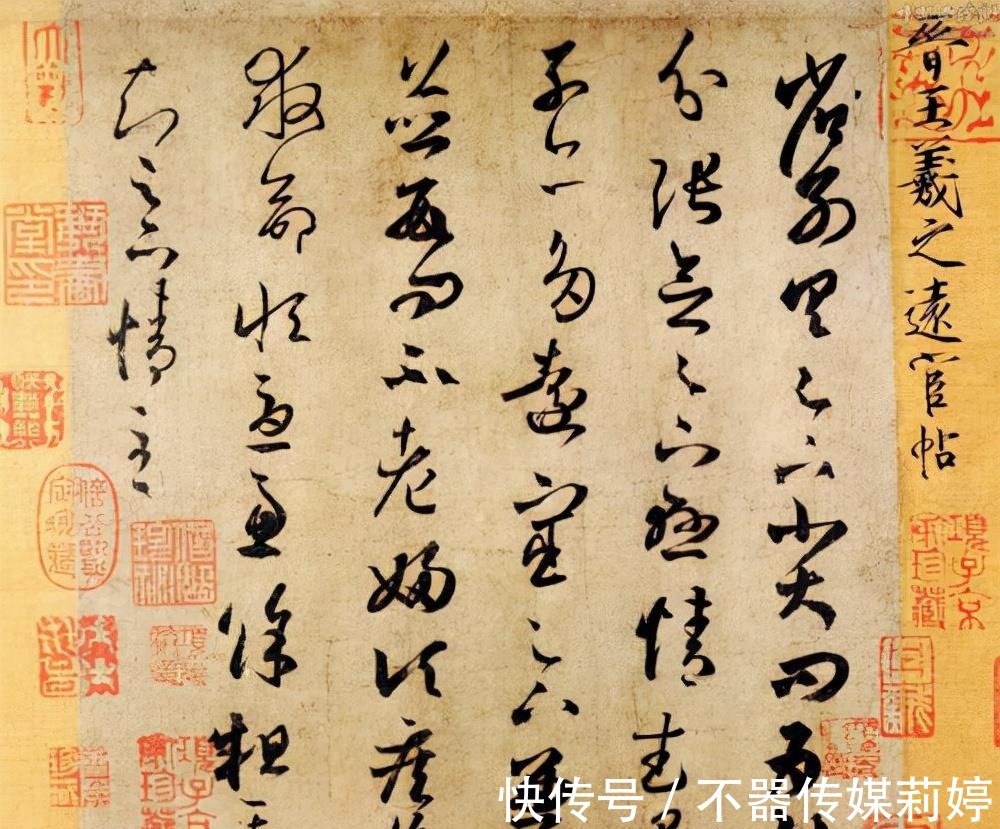 晉王羲之遠宦帖
省別具足下小大問為
分張念足下懸情武
子亦多遠宦足下兼
並數問不老婦頃疾
救命恒憂慮餘粗平
知足下情至
項子京家珍藏
快传号 / 不器传媒莉婷